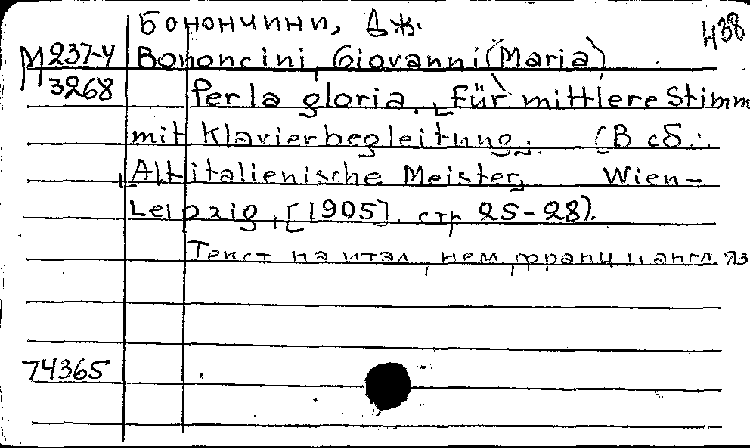 Бонончини, Дж. 438
М 237-4 Bononcini, Giovanni (Maria)
3268 Per la gloria. [Für mittlere Stimm
mit Klavierbegleitung. (В сб.:
Altitalienische Meister, Wien-
Leipzig, [1905]. стр 25-28).
Текст на итал, нем, франц и англ. яз
74365